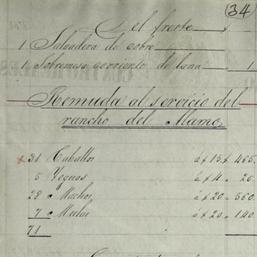 (34)
del frente $
1 Salvadera de cobre
1 Sobremesa corriente de lana 1
Remuda al servicio del
rancho del Alamo.
31 Caballos á $15 $465.
5 Yeguas á $4 20.
28 Machos á $20 560
7 Mulas á $20 140
71